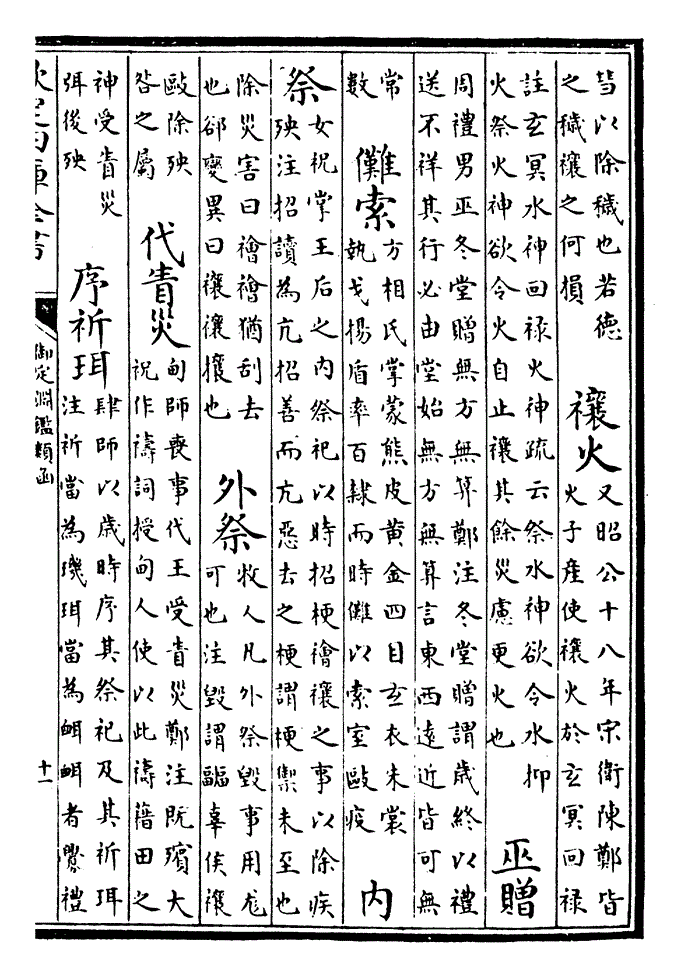 皆以除穢也若德
之穢禳之何損
禳火
又昭公十八年宋衛陳鄭皆
火子產使禳火於玄冥回祿
註玄冥水神回祿火神疏云祭水神欲令水抑
火祭火神欲令火自止禳其餘災慮更火也
巫贈
周禮男巫冬堂贈無方無算鄭注冬堂贈謂歲終以禮
送不祥其行必由堂始無方無算言東西遠近皆可無
常
數
儺索
方相氏掌蒙熊皮黃金四目玄衣朱裳
執戈揚盾率百隸而時儺以索室毆疫
內
祭
女祝掌王后之內祭祀以時招梗禬禳之事以除疾
殃注招讀為亢招善而亢惡去之梗謂梗禦未至也
除災害曰禬禬猶刮去
也郤變異曰禳禳攘也
外祭
牧人凡外祭毀事用尨
可也注毀謂疈辜侯禳
毆除殃
咎之屬
代眚災
甸師喪事代王受眚災鄭注既殯大
祝作禱詞授甸人使以此禱藉田之
神受眚災
弭後殃
序祈珥
肆師以歲時序其祭祀及其祈珥
注祈當為璣珥當為衈衈者釁禮
欽定四庫全書
御定淵鑑類函
十一